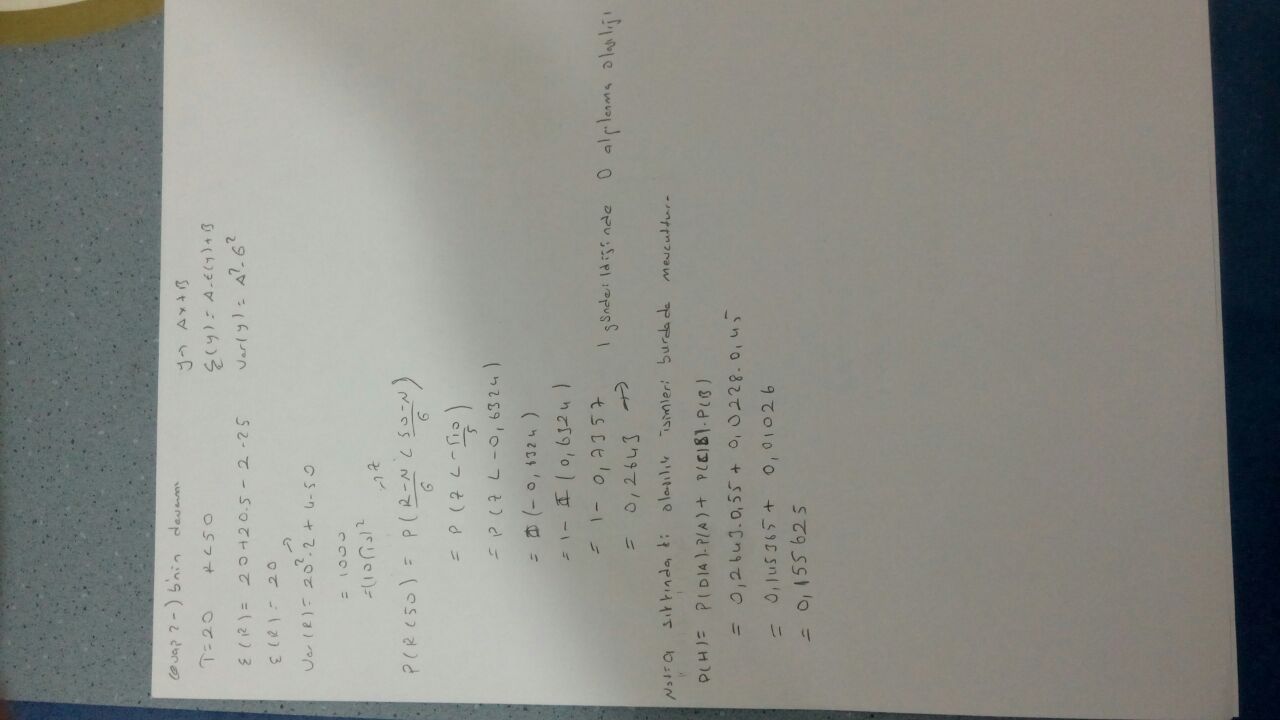 Cevap 2-) b'nin devamı
T=20 R<50
E(R) = 20+20.5 - 2.25
E(R) = 20
Var(R) = 20².2 + 4.50
= 1000
= (10√10)²
P(R<50) = P(R-N/6 < 50-N/6) → z
= P(Z < -√10/5)
= P(Z < -0,6324)
= Φ(-0,6324)
= 1 - Φ(0,6324)
= 1 - 0,7357
= 0,2643 → 1 gönderildiğinde 0 algılanma olasılığı
Not= a şıkkında ki olasılık isimleri burdada mevcuttur.
P(H) = P(D|A).P(A) + P(C|B).P(B)
= 0,2643.0,55 + 0,0228.0,45
= 0,145365 + 0,01026
= 0,155625
y→ Ax+B
E(y) = A.E(y)+B
Var(y) = A².6²